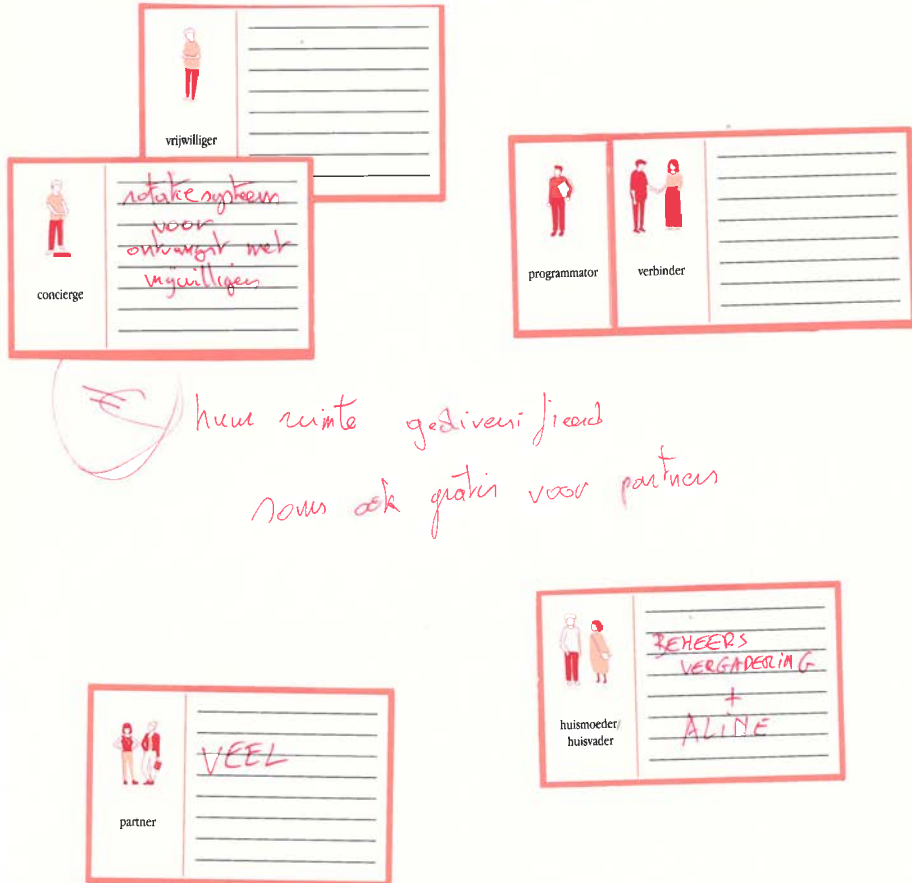 vrijwilliger
concierge
rotatiesysteem
voor
ontvangst met
vrijwilligers
programmator
verbinder
€ huur ruimte gediversifieerd
soms ook gratis voor partners
huismoeder/
huisvader
BEHEERS
VERGADERING
+
ALINE
partner
VEEL